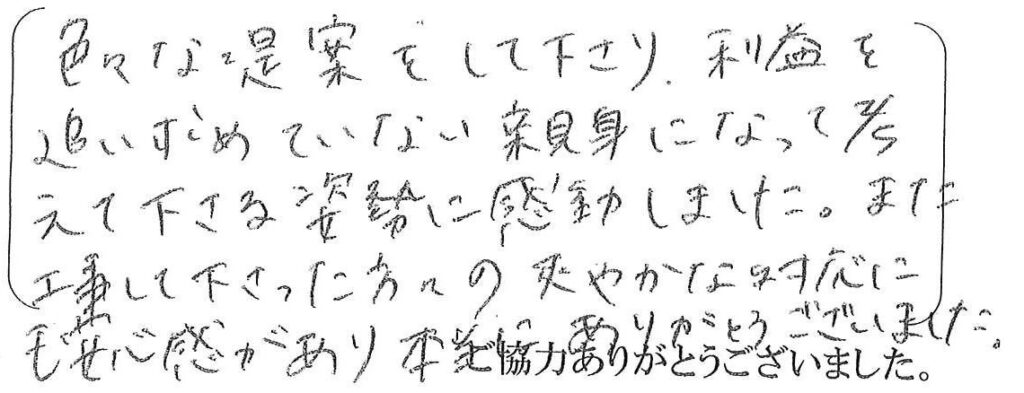 色々な提案をして下さり、利益を
追いすぎめていない親身になって考
えて下さる姿勢に感動しました。また
工事して下さった方々の爽やかな対応に
も安心感があり本当にありがとうございました。
ご協力ありがとうございました。